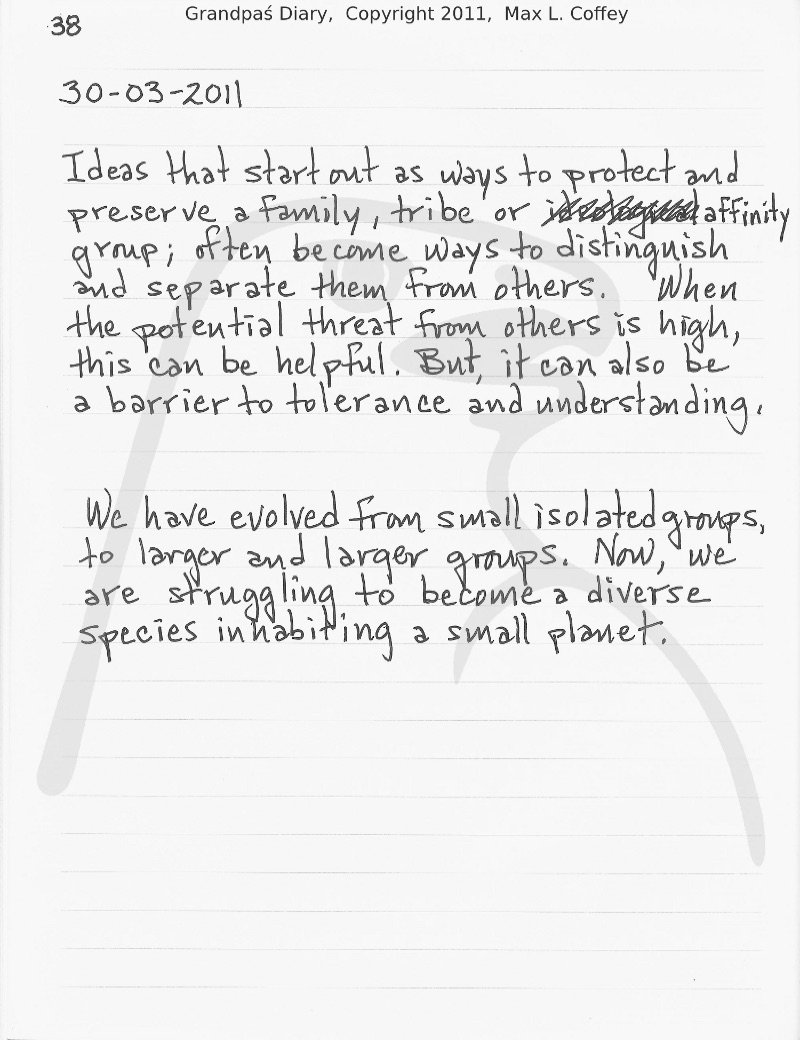 Grandpaś Diary, Copyright 2011, Max L. Coffey
38
30-03-2011
Ideas that start out as ways to protect and
preserve a family, tribe or affinity
group; often become ways to distinguish
and separate them from others. When
the potential threat from others is high,
this can be helpful. But, it can also be
a barrier to tolerance and understanding.
We have evolved from small isolated groups,
to larger and larger groups. Now, we
are struggling to become a diverse
species inhabiting a small planet.